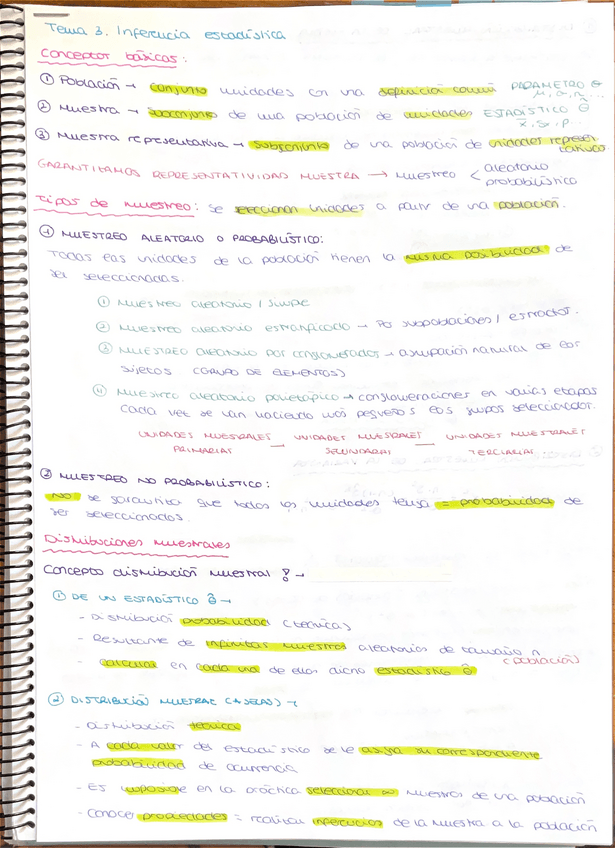 Tema 3. Inferencia estadística
Conceptos básicos:
① Población → conjunto unidades con una definición común PARÁMETRO θ
μ, σ, π...
② Muestra → subconjunto de una población de unidades ESTADÍSTICO θ̂
x̄, Sx, p...
③ Muestra representativa → subconjunto de una población de unidades represen
tativas.
GARANTIZAMOS REPRESENTATIVIDAD MUESTRA → MUESTREO < aleatorio
probabilístico
Tipos de muestreo: se seleccionan unidades a partir de una población.
① MUESTREO ALEATORIO O PROBABILÍSTICO:
Todas las unidades de la población tienen la misma posibilidad de
ser seleccionadas.
① Muestreo aleatorio / simple
② Muestreo aleatorio estratificado → Por subpoblaciones / estratos.
③ MUESTREO aleatorio por conglomerados → agrupación natural de los
sujetos (GRUPO DE ELEMENTOS)
④ Muestreo aleatorio polietápico → conglomeraciones en varias etapas
cada vez se van haciendo más pequeños los grupos seleccionados.
UNIDADES MUESTRALES — UNIDADES MUESTRALES — UNIDADES MUESTRALES
PRIMARIAS SECUNDARIAS TERCIARIAS
② MUESTREO NO PROBABILÍSTICO:
NO se garantiza que todas las unidades tenga = probabilidad de
ser seleccionados.
Distribuciones muestrales
Concepto distribución muestral ? →
① DE UN ESTADÍSTICO θ̂ →
- Distribución probabilidad (teóricas)
- Resultante de infinitas muestras aleatorias de tamaño n
(población)
- calcular en cada una de ellas dicho estadístico θ̂
② DISTRIBUCIÓN MUESTRAL →
- Distribución teórica
- A cada valor del estadístico se le asigna su correspondiente
probabilidad de ocurrencia
- Es imposible en la práctica seleccionar ∞ muestras de una población
- Conocer propiedades = realizar inferencias de la muestra a la población